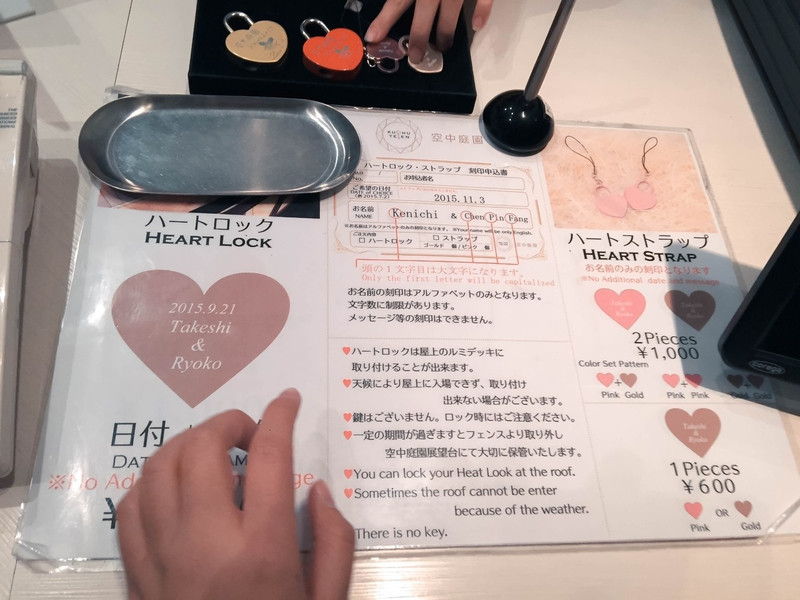 KUCHU
TEIEN
空中庭園
ハートロック・ストラップ 刻印申込書
No.
お申込者名
ご希望の日付
DATE of CHOICE
(例 2015.7.2)
2015.11.3
お名前
NAME
Kenichi & Chen Pin Fang
※お名前はアルファベットのみの刻印となります。 ※Your name will be only English.
ご注文内容
□ ハートロック
□ ストラップ
ゴールド 個 / ピンク 個
頭の1文字目は大文字になります。
Only the first letter will be capitalized
お名前の刻印はアルファベットのみとなります。
文字数に制限があります。
メッセージ等の刻印はできません。
ハートロック
HEART LOCK
2015.9.21
Takeshi
&
Ryoko
日付
※No
¥
♥ハートロックは屋上のルミデッキに
取り付けることが出来ます。
♥天候により屋上に入場できず、取り付け
出来ない場合がございます。
♥鍵はございません。ロック時にはご注意ください。
♥一定の期間が過ぎますとフェンスより取り外し
空中庭園展望台にて大切に保管いたします。
♥You can lock your Heat Look at the roof.
♥Sometimes the roof cannot be enter
because of the weather.
There is no key.
ハートストラップ
HEART STRAP
お名前のみの刻印となります
※No Additional date and message
Takeshi
&
Ryoko
2Pieces
¥1,000
Color Set Pattern
Pink Gold
Pink Pink
Gold Gold
Takeshi
&
Ryoko
1Pieces
¥600
OR
Pink Gold